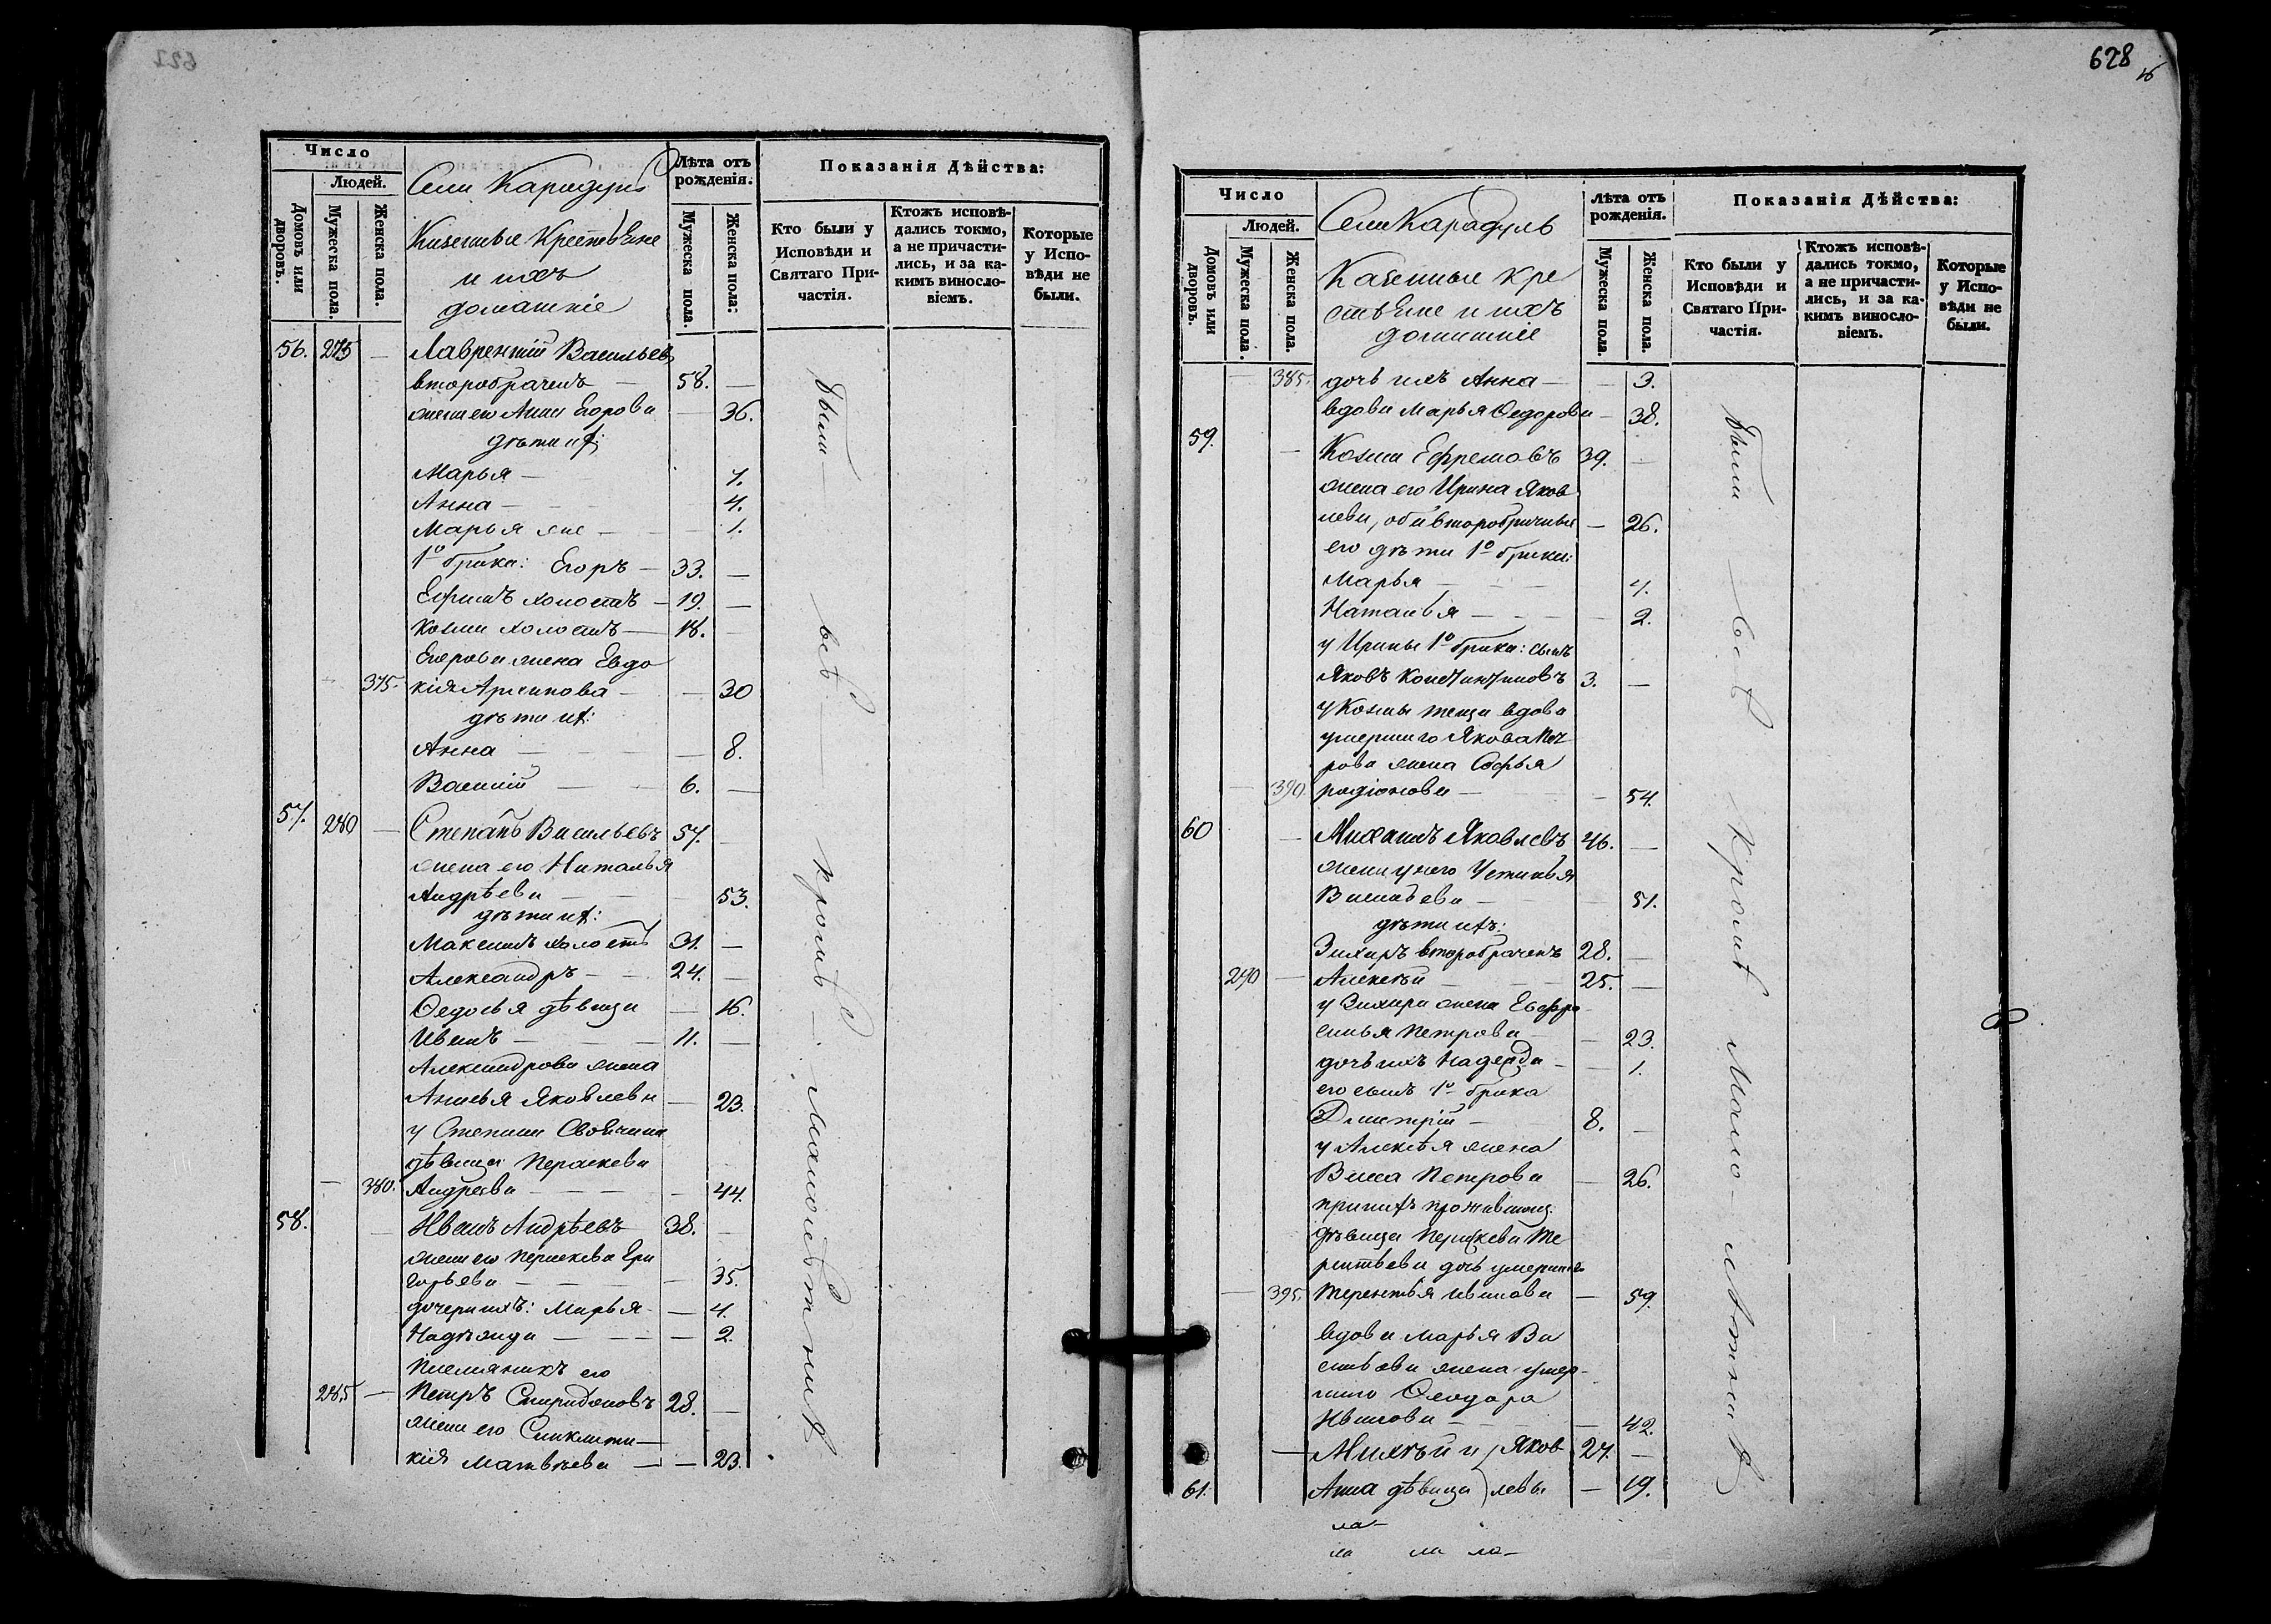 628
Число
Людей.
Домовъ или дворовъ.
Мужеска пола.
Женска пола.
Села Карадуль
Казенные Крестьяне
и ихъ
домашніе
Лѣта отъ рожденія.
Мужеска пола.
Женска пола:
Показанія Дѣйства:
Кто были у Исповѣди и Святаго Причастія.
Ктожъ исповѣдались токмо, а не причастились, и за какимъ винословіемъ.
Которые у Исповѣди не были.
56. 275 — Лаврентій Васильевъ
второбраченъ — 58. —
жена его Анна Егорова — 36.
дѣти их:
Марья — 7.
Анна — 4.
Марья же — 1.
1го брака: Егоръ — 33. —
Ефимъ холостъ — 19. —
Козма холостъ — 18. —
Егорова жена Евдо
— 375. кія Архипова — — 30
дѣти их:
Анна — — 8.
Василій — 6. —
57. 280 — Степанъ Васильевъ 57. —
жена его Наталья
Андрѣева — — 53.
дѣти их:
Максимъ холостъ 31. —
Александръ — 24. —
Ѳедосья дѣвица — 16.
Иванъ — 11. —
Александрова жена
Анисья Яковлева — 23.
у Степана Своячина
дѣвица Параскева
— 380. Андреева — — 44.
58. — Иванъ Андрѣевъ 38. —
жена его Параскева Гри
горьева — — 35.
дочери ихъ: Марья — — 4.
Надѣжда — — 2.
племянникъ его
285 — Петръ Спиридоновъ 28. —
жена его Синклити
кія Матвѣева — — 23.
были — всѣ — кромѣ — малолѣтних
Число
Людей.
Домовъ или дворовъ.
Мужеска пола.
Женска пола.
Села Карадуль
Казенные Кре
стьяне и ихъ
домашніе
Лѣта отъ рожденія.
Мужеска пола.
Женска пола.
Показанія Дѣйства:
Кто были у Исповѣди и Святаго Причастія.
Ктожъ исповѣдались токмо, а не причастились, и за какимъ винословіемъ.
Которые у Исповѣди не были.
— 385. дочь ихъ Анна — — 3.
вдова Марья Ѳедорова — 38.
59. — Козма Ефремовъ 39. —
жена его Ирина Яков
лева, оба второбрачные — 26.
его дѣти 1го брака:
Марья — 4.
Наталья — — 2.
у Ирины 1го брака: сынъ
Яковъ Константиновъ 3. —
у Козмы теща вдова
умершаго Якова Пет
рова жена Софья
— 390. родіонова — — 54.
60 — Михаилъ Яковлевъ 46. —
жена у него Устинья
Васильева — — 51.
дѣти ихъ:
Захаръ второбраченъ 28. —
290 — Алексѣй — 25. —
у Захара жена Евфро
синья Петрова — 23.
дочь ихъ Надежда — — 1.
его сынъ 1го брака
Дмитрій — 8. —
у Алексѣя жена
Васса Петрова — 26.
при них проживающ.
дѣвица Параскева Те
рентьева дочь умершаго
— 395. Терентья Иванова — 59.
вдова Марья Ва
сильева жена умер
шаго Ѳеодора
Иванова — — 42.
— Михѣй и Яков 27. —
61. Анна дѣвица левы — 19.
были — всѣ кромѣ Мало-лѣтних